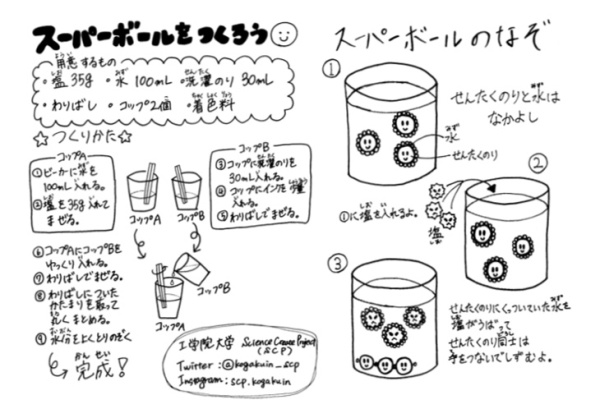 スーパーボールをつくろう
用意するもの
・塩 35g ・水 100mL ・洗濯のり 30mL
・わりばし ・コップ2個 ・着色料
☆つくりかた☆
コップA
①ビーカに水を
100mL入れる。
②塩を35g入れて
まぜる。
コップB
③コップに洗濯のりを
30mL入れる。
④コップにインクを少量
入れる。
⑤わりばしでまぜる。
コップA
コップB
⑥コップAにコップBを
ゆっくり入れる。
⑦わりばしでまぜる。
⑧わりばしについた
かたまりを取って
丸くまとめる。
⑨水分をよくとりのぞく
完成!
コップB
コップA
工学院大学 Science Create Project
(SCP)
Twitter:@kogakuin_scp
Instagram:scp.kogakuin
スーパーボールのなぞ
①
せんたくのりと水は
なかよし
水
せんたくのり
②
①に塩を入れるよ。
塩
③
せんたくのりにくっついていた水を
塩がうばって
せんたくのり同士は
手をつないでしずむよ。